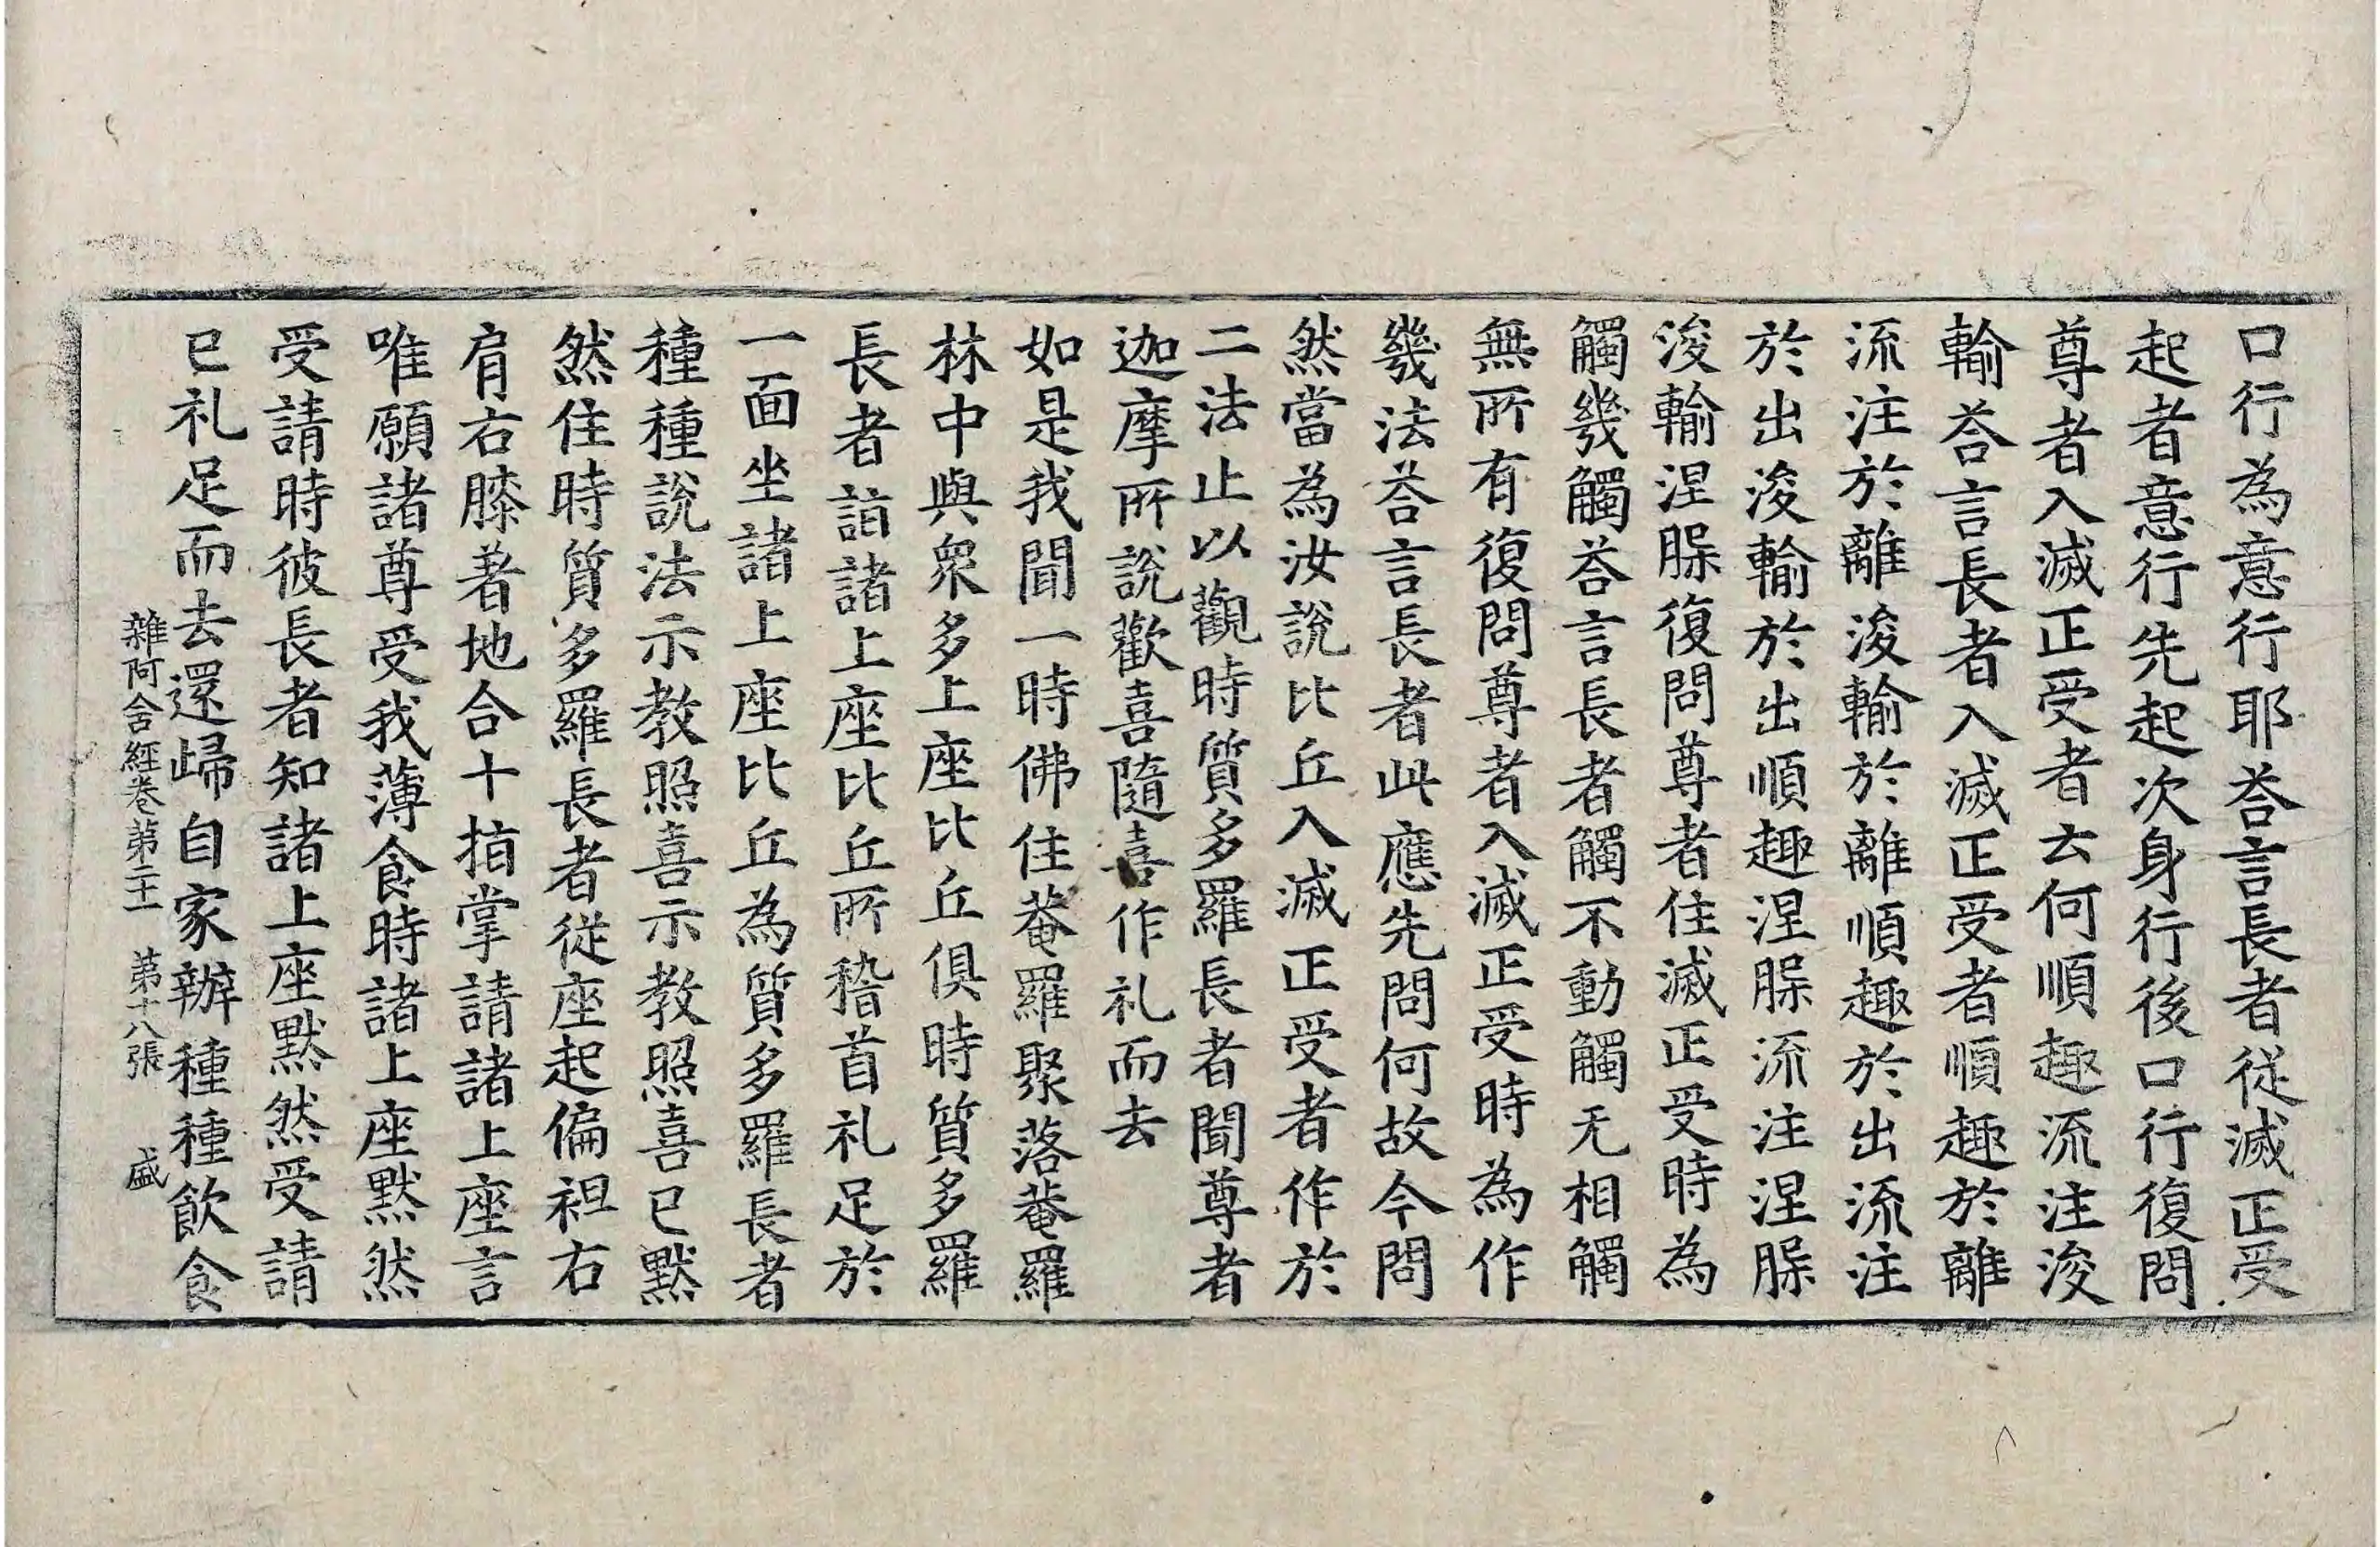 口行為意行耶荅言長者從滅正受
起者意行先起次身行後口行復問
尊者入滅正受者云何順趣流注浚
輸荅言長者入滅正受者順趣於離
流注於離浚輸於離順趣於出流注
於出浚輸於出順趣涅腺流注涅腺
浚輸涅腺復問尊者住滅正受時為
觸幾觸荅言長者觸不動觸无相觸
無所有復問尊者入滅正受時為作
幾法荅言長者此應先問何故今問
然當為汝說比丘入滅正受者作於
二法止以觀時質多羅長者聞尊者
迦摩所說歡喜隨喜作礼而去
如是我聞一時佛住菴羅聚落菴羅
林中與衆多上座比丘俱時質多羅
長者詣諸上座比丘所稽首礼足於
一面坐諸上座比丘為質多羅長者
種種說法示教照喜示教照喜已默
然住時質多羅長者從座起偏袒右
肩右膝著地合十指掌請諸上座言
唯願諸尊受我薄食時諸上座黙然
受請時彼長者知諸上座黙然受請
已礼足而去還歸自家辦種種飲食
雜阿含經卷第二十一　第十八張　盛